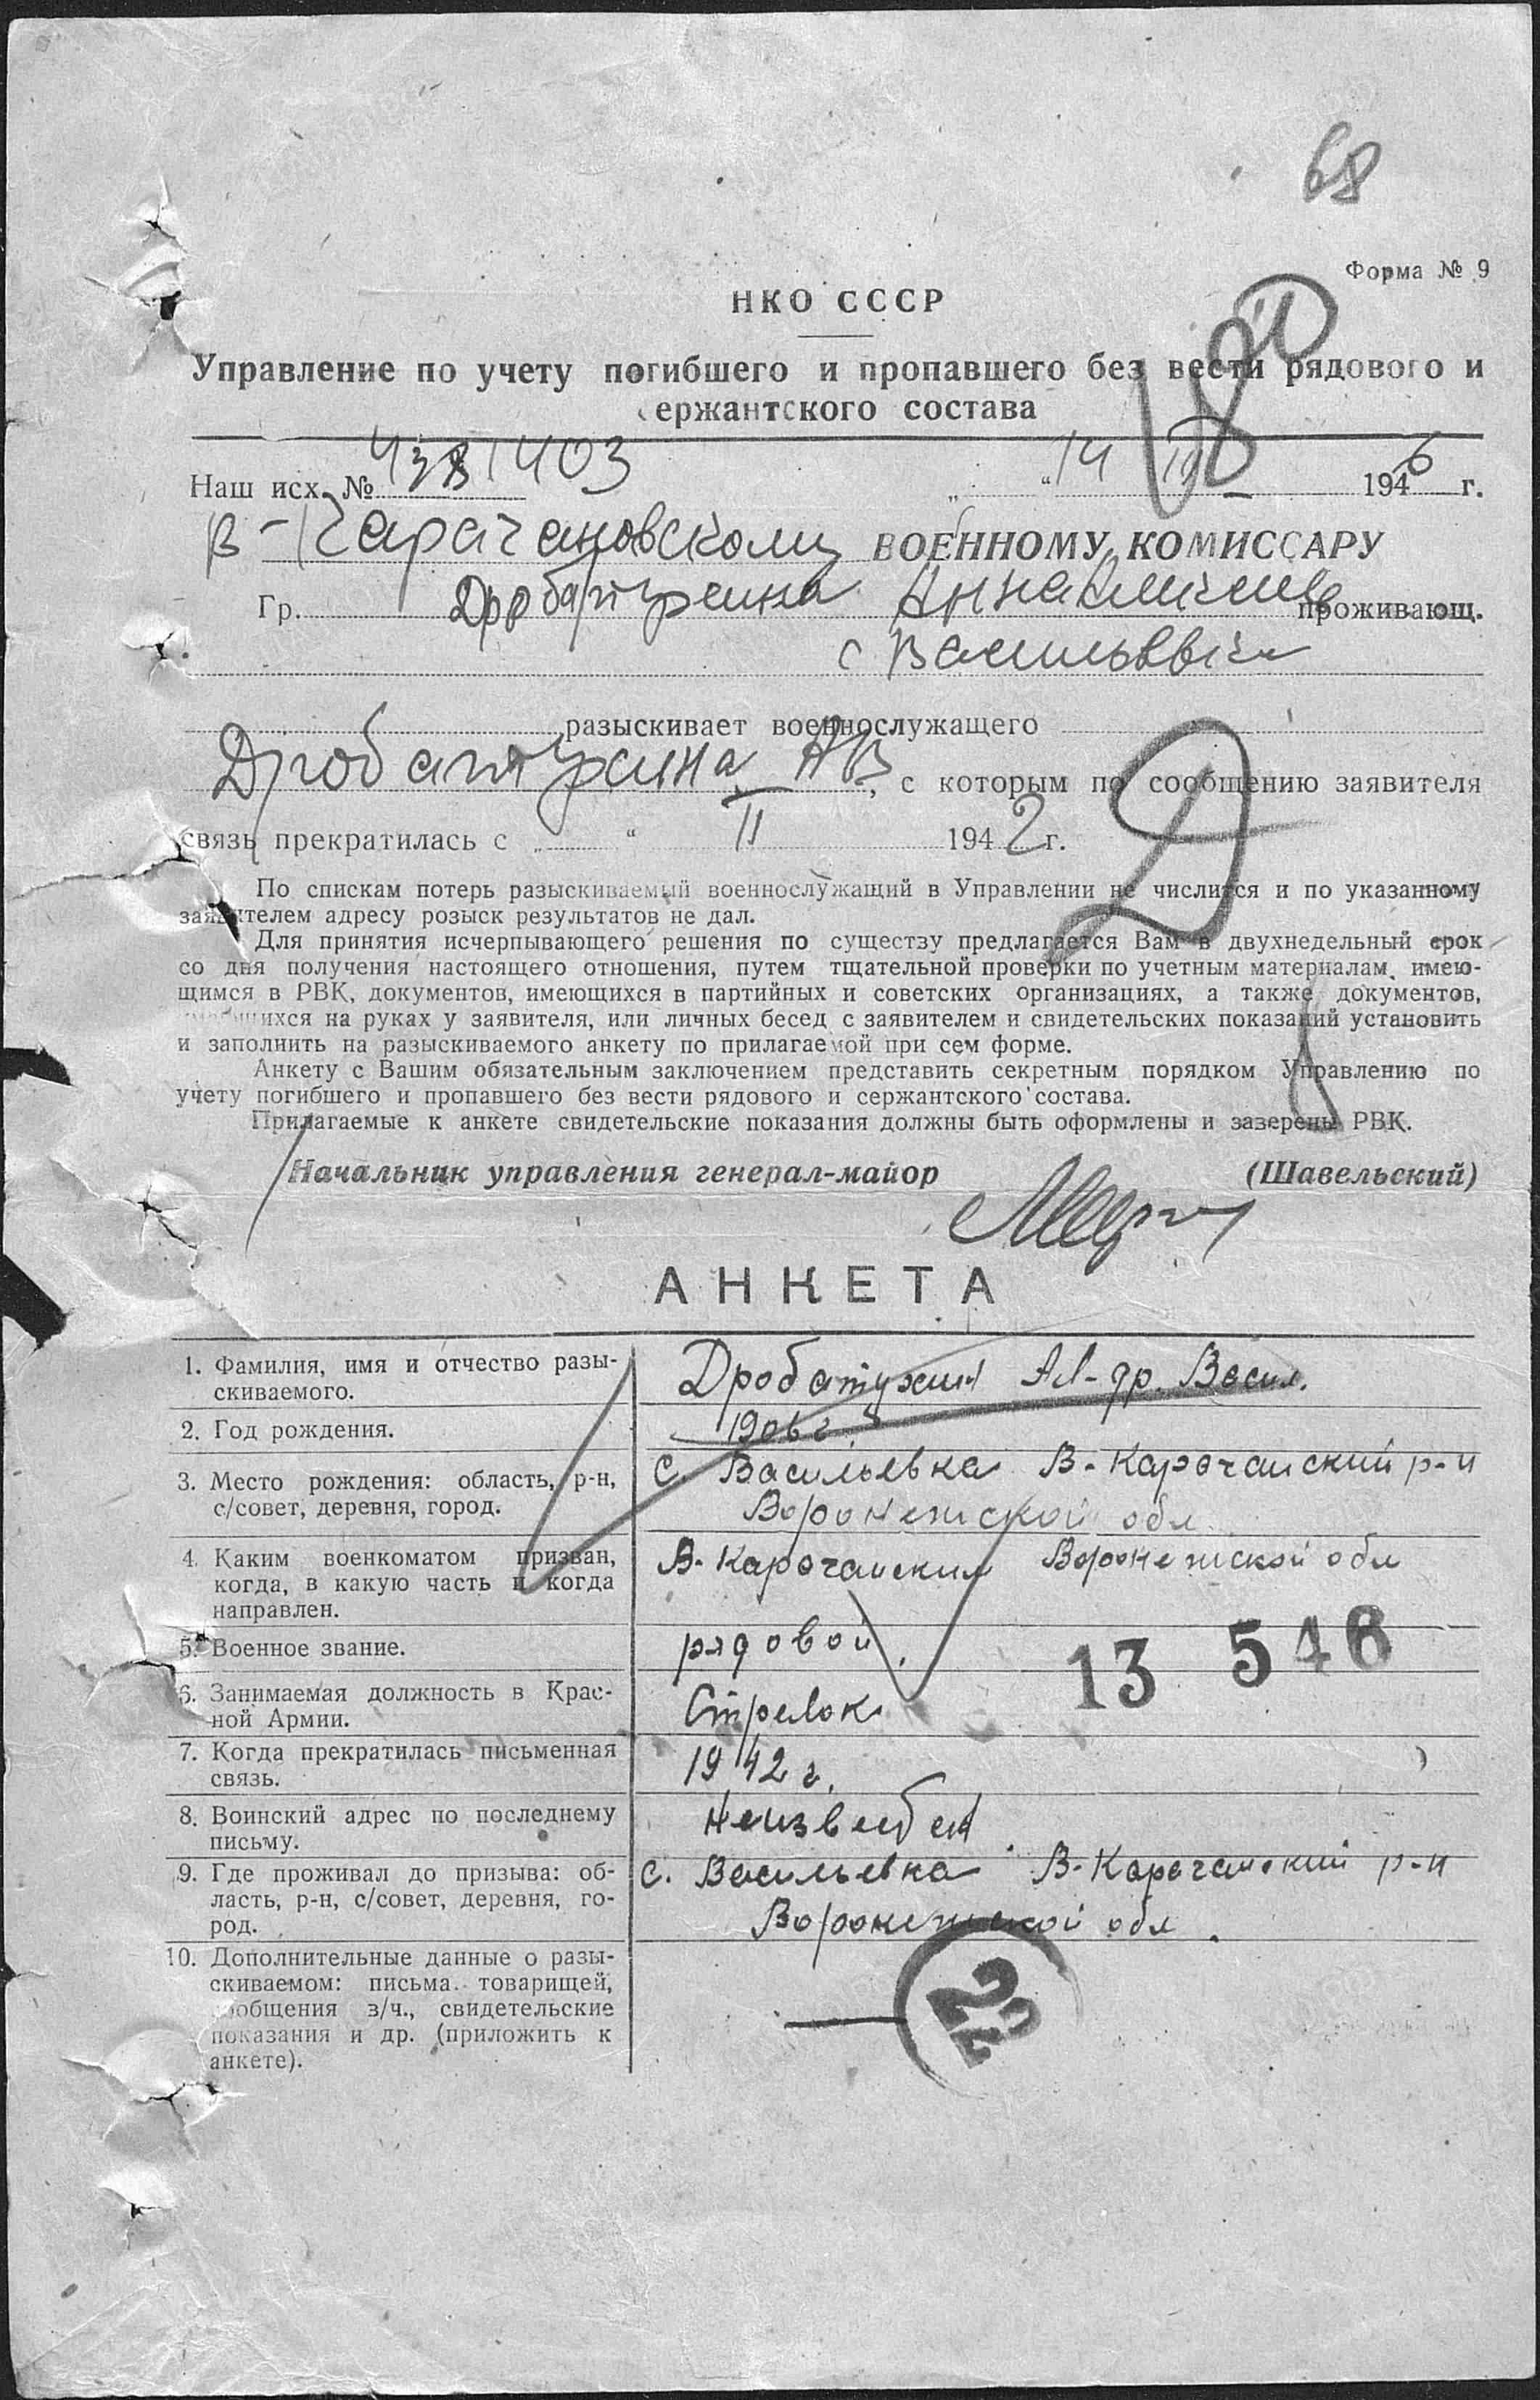 68
Форма № 9
НКО СССР
Управление по учету погибшего и пропавшего без вести рядового и
сержантского состава
Наш исх. № 1403 „ “ 14 III 1946 г.
В-Карачановскому ВОЕННОМУ КОМИССАРУ
Гр. Анна проживающ.
с Васильевки
разыскивает военнослужащего
Дробатухина АВ, с которым по сообщению заявителя
связь прекратилась с „ “ II 1942 г.
По спискам потерь разыскиваемый военнослужащий в Управлении не числится и по указанному
заявителем адресу розыск результатов не дал.
Для принятия исчерпывающего решения по существу предлагается Вам в двухнедельный срок
со дня получения настоящего отношения, путем тщательной проверки по учетным материалам, имею-
щимся в РВК, документов, имеющихся в партийных и советских организациях, а также документов,
имеющихся на руках у заявителя, или личных бесед с заявителем и свидетельских показаний установить
и заполнить на разыскиваемого анкету по прилагаемой при сем форме.
Анкету с Вашим обязательным заключением представить секретным порядком Управлению по
учету погибшего и пропавшего без вести рядового и сержантского состава.
Прилагаемые к анкете свидетельские показания должны быть оформлены и заверены РВК.
Начальник управления генерал-майор (Шавельский)
АНКЕТА
1. Фамилия, имя и отчество разы-
скиваемого.
Дробатухин Ал-др. Васил.
2. Год рождения.
1906 г.
3. Место рождения: область, р-н,
с/совет, деревня, город.
с. Васильевка В-Карачанский р-н
Воронежской обл
4. Каким военкоматом призван,
когда, в какую часть и когда
направлен.
В-Карачанским Воронежской обл
5. Военное звание.
рядовой
13 546
6. Занимаемая должность в Крас-
ной Армии.
Стрелок
7. Когда прекратилась письменная
связь.
1942 г.
8. Воинский адрес по последнему
письму.
Неизвестен
9. Где проживал до призыва: об-
ласть, р-н, с/совет, деревня, го-
род.
с. Васильевка В-Карачанский р-н
Воронежской обл.
10. Дополнительные данные о разы-
скиваемом: письма товарищей,
сообщения з/ч., свидетельские
показания и др. (приложить к
анкете).
—